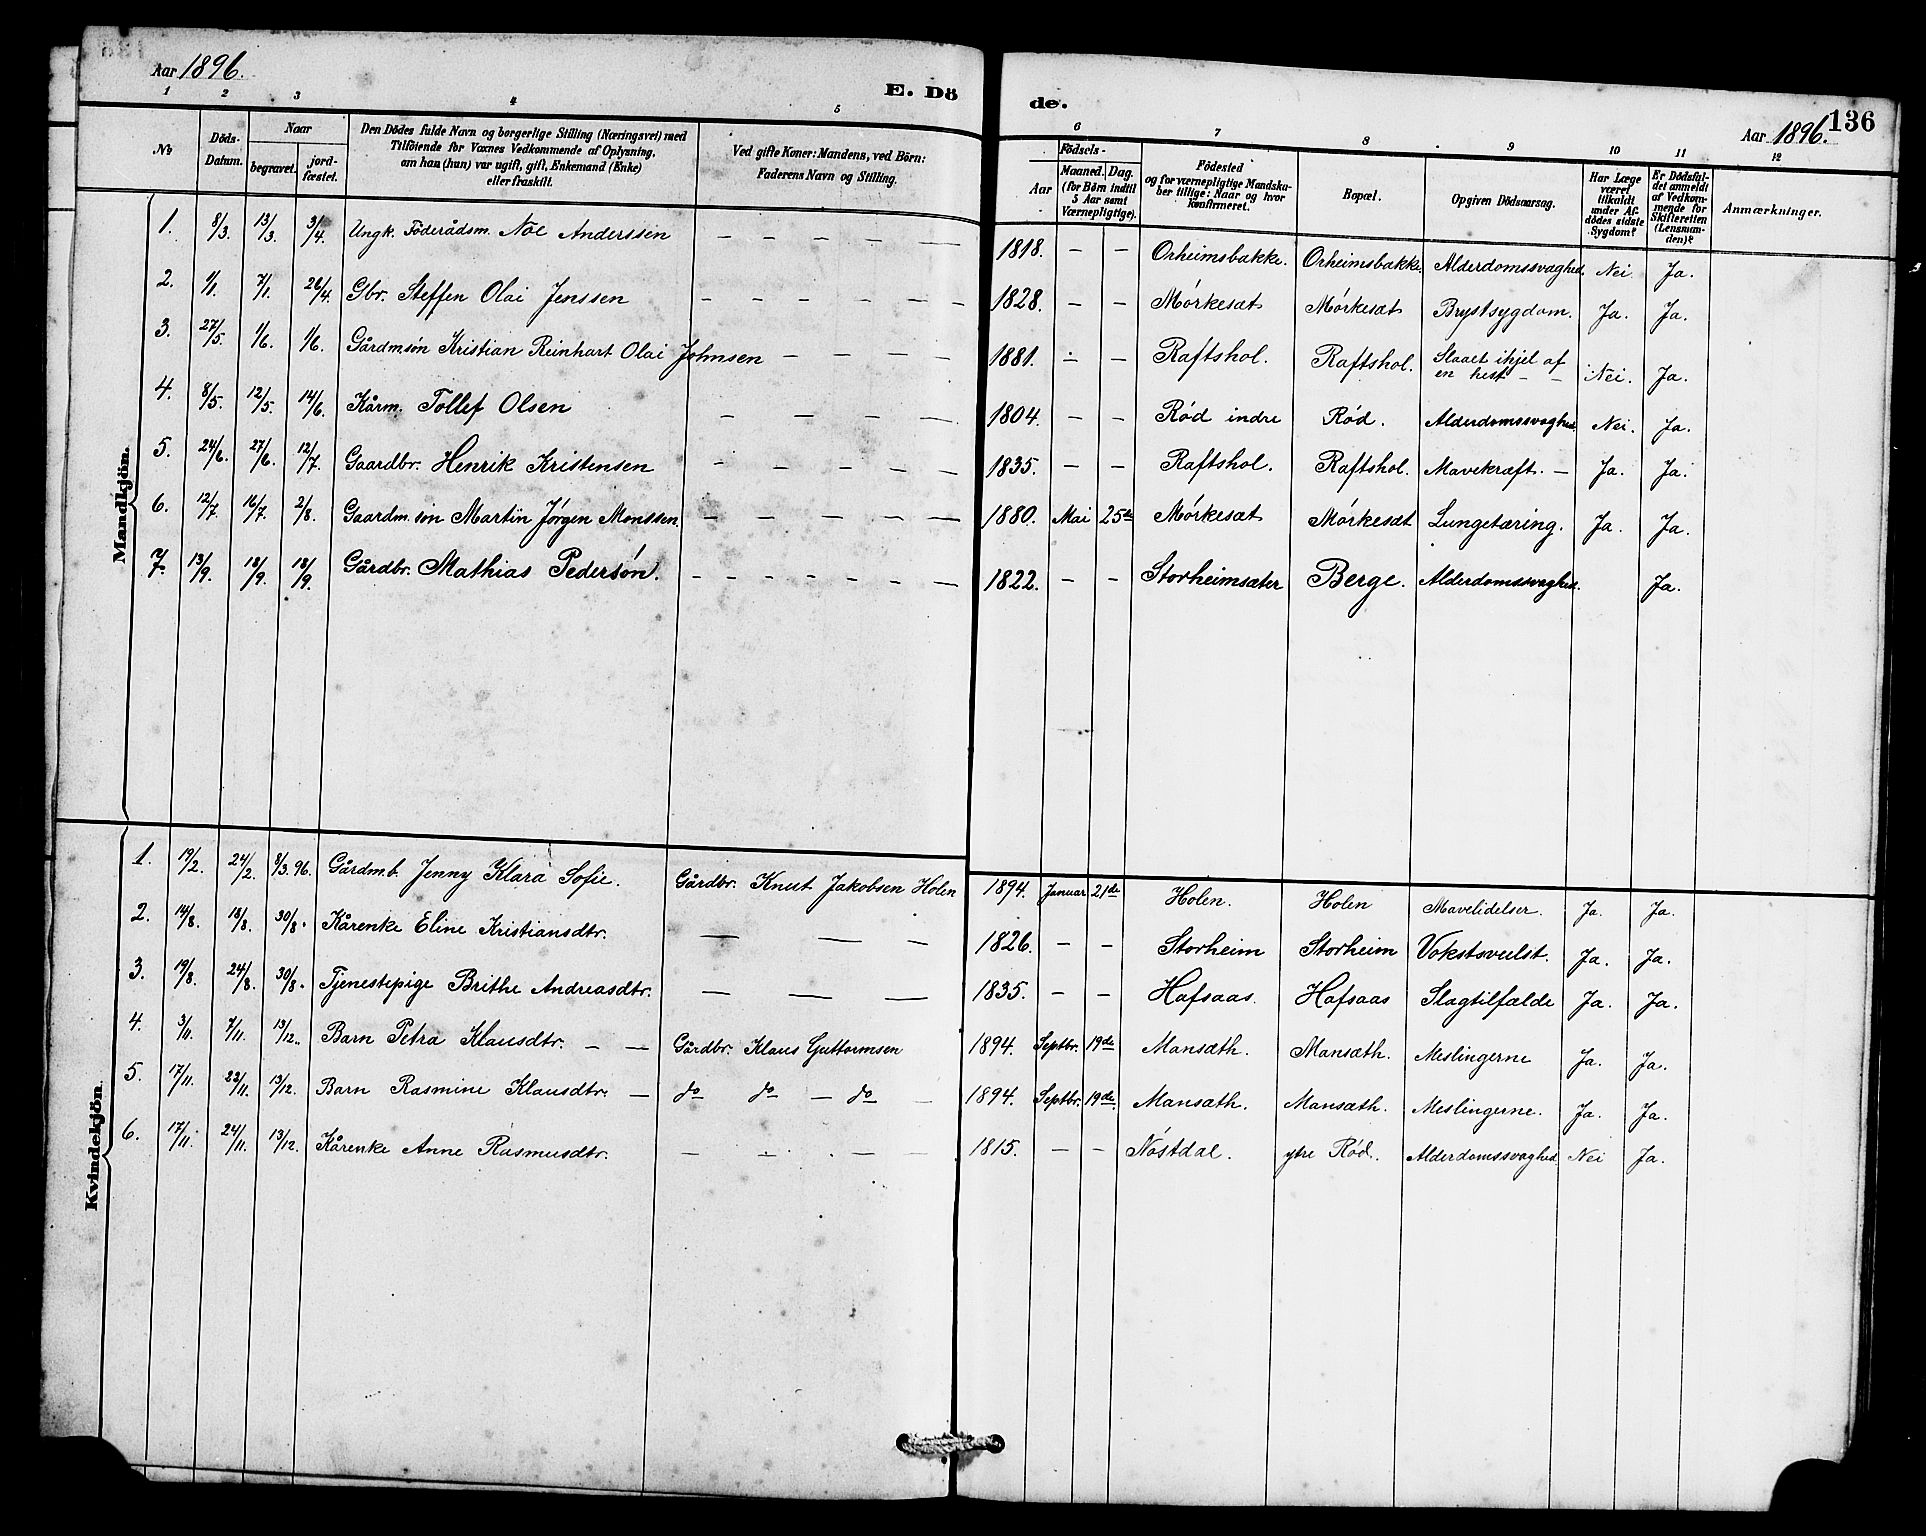 Aar 1896.
E. Dö
de.
136
Aar 1896.
1 2 3 4 5 6 7 8 9 10 11 12
No
Döds-Datum.
Naar
begravet.
jord-fæstet.
Den Dödes fulde Navn og borgerlige Stilling (Næringsvei) med
Tilföiende for Voxnes Vedkommende af Oplysning.
om han (hun) var ugift, gift, Enkemand (Enke)
eller fraskilt.
Ved gifte Koner: Mandens, ved Börn:
Faderens Navn og Stilling.
Födsels-
Aar
Maaned. Dag.
(for Börn indtil
5 Aar samt
Værnepligtige).
Födested
og for værnepligtige Mandska-
ber tillige: Naar og hvor
konfirmeret.
Bopæl.
Opgiven Dödsaarsag.
Har Læge
været
tilkaldt
under Af-
dödes sidste
Sygdom?
Er Dödsfal-
det anmeldt
af Vedkom-
mende for
Skifteretten
(Lensman-
den)?
Anmærkninger.
Mandkjön.
1. 8/3. 13/3. 3/4. Ungk. Föderådsm. Noe Anderssen — — — — — 1818. — — Orheimsbakke. Orheimsbakke. Alderdomssvaghed. Nei. Ja.
2. 1/1. 7/1. 26/4. Gbr. Steffen Olai Jenssen — — — — — — 1828. — — Mórkesæt Mórkesæt Brystsygdom. Ja. Ja.
3. 27/5. 1/6. 1/6. Gårdm.søn Kristian Reinhart Olai Johnsen — — — — 1881. — — Raftshol. Raftshol. Slaaet ihjel af en hest — — Nei. Ja.
4. 8/5. 12/5. 14/6. Kårm. Tollef Olsen — — — — 1804. — — Rød indre Rød. Alderdomssvaghed. Nei. Ja.
5. 24/6. 27/6. 12/7. Gaardbr. Henrik Kristensen — — — — — 1835. — — Raftshol. Raftshol. Mavekræft. — Ja. Ja.
6. 12/7. 16/7. 2/8. Gaardm.søn Martin Jórgen Monssen. — — — — — 1880. Mai 25de Mórkesæt Mórkesæt Lungetæring. Ja. Ja.
7. 13/9. 18/9. 18/9. Gårdbr. Mathias Pedersón. — — — — — — — — 1822. — — Storheimsæter Berge. Alderdomssvaghed. Ja.
Kvindekjön.
1. 19/2. 24/2. 8/3. 96. Gårdm.b. Jenny Klara Sofie. Gårdbr. Knut Jakobsen Holen 1894. Januar 21de Holen. Holen Mavelidelser. Ja. Ja.
2. 14/8. 18/8. 30/8. Kårenke Eline Kristiansdtr. — — — 1826. — — Storheim Storheim Vokstsvulst. Ja. Ja.
3. 19/8. 24/8. 30/8. Tjenestepige Brithe Andreasdtr. — — — 1835. — — Hafsaas. Hafsaas Slagtilfælde Ja. Ja.
4. 3/11. 7/11. 13/12. Barn Petra Klausdtr. — — Gårdbr. Klaus Guttormsen 1894. Septbr. 19de Mansæth. Mansæth. Meslingerne Ja. Ja.
5. 17/11. 23/11. 13/12. Barn Rasmine Klausdtr. — do do — do — 1894. Septbr. 19de. Mansæth. Mansæth. Meslingerne. Ja. Ja.
6. 17/11. 24/11. 13/12. Kårenke Anne Rasmusdtr. — — — — 1815. — — Nóstdal. ytre Rød. Alderdomssvaghed. Nei Ja.